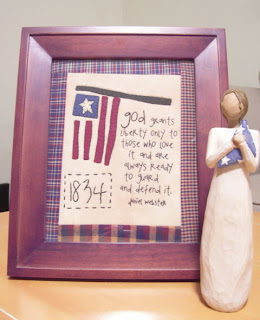 god grants
liberty only to
those who love
it and are
always ready
to guard
and defend it.
daniel webster
1834